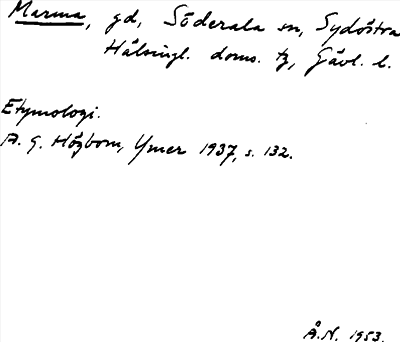 Marma, gd, Söderala sn, Sydöstra
Hälsingl. doms. tg, Gävl. l.
Etymologi.
A. G. Högbom, Ymer 1937, s. 132.
Å.N. 1953.